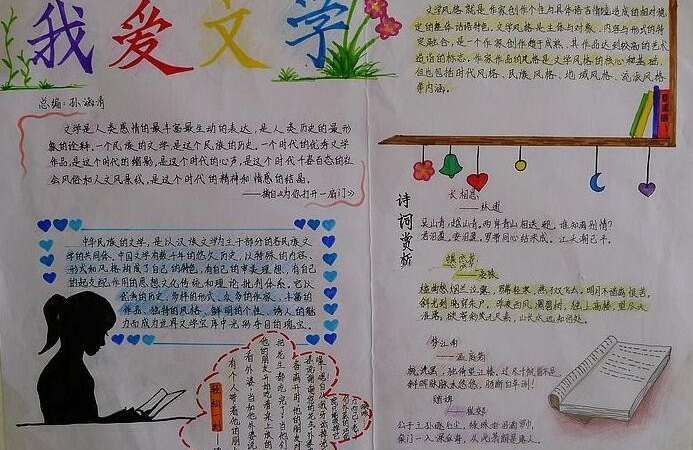 我爱文学
总编:孙涵清
文学是人类感情的最丰富最生动的表达,是人类历史的最形
象的诠释,一个民族的文学,是这个民族的历史,一个时代的优秀文学
作品,是这个时代的缩影,是这个时代的心声,是这个时代千姿百态的社
会风俗和人文风景线,是这个时代的精神和情感的结晶。
中华民族的文学,是以汉族文学为主干部分的各民族文
学的共同体。中国文学有数千年的悠久历史,以特殊的内容、
形式和风格构成了自己的特色,有自己的审美理想,有自己
的起支配作用的思想文化传统和理论批判体系。它以
优秀的历史、多样的形式、众多的作家、丰富的
作品、独特的风格、鲜明的个性、诱人的魅
力而成为世界文学宝库中光彩夺目的瑰宝。
文学风格,就是作家创作个性与具体话语情境造成的相对稳
定的整体话语特色。文学风格是主体与对象、内容与形式的特
定融合,是一个作家创作趋于成熟、其作品达到较高的艺术
造诣的标志。作家作品的风格是文学风格的核心和基础,
但也包括时代风格、民族风格、地域风格、流派风格
等内涵。
诗词赏析
长相思
——林逋
吴山青,越山青,两岸青山相送迎,谁知离别情?
君泪盈,妾泪盈,罗带同心结未成,江头潮已平。
蝶恋花
——晏殊
槛菊愁烟兰泣露,罗幕轻寒,燕子双飞去,明月不谙离恨苦,
斜光到晓穿朱户。昨夜西风凋碧树,独上高楼,望尽天
涯路,欲寄彩笺无尺素,山长水远知何处。
梦江南
——温庭筠
梳洗罢,独倚望江楼,过尽千帆皆不是,
斜晖脉脉水悠悠,肠断白苹洲!
赠婢
——崔郊
公子王孙逐后尘,绿珠垂泪滴罗巾,
侯门一入深似海,从此萧郎是路人。